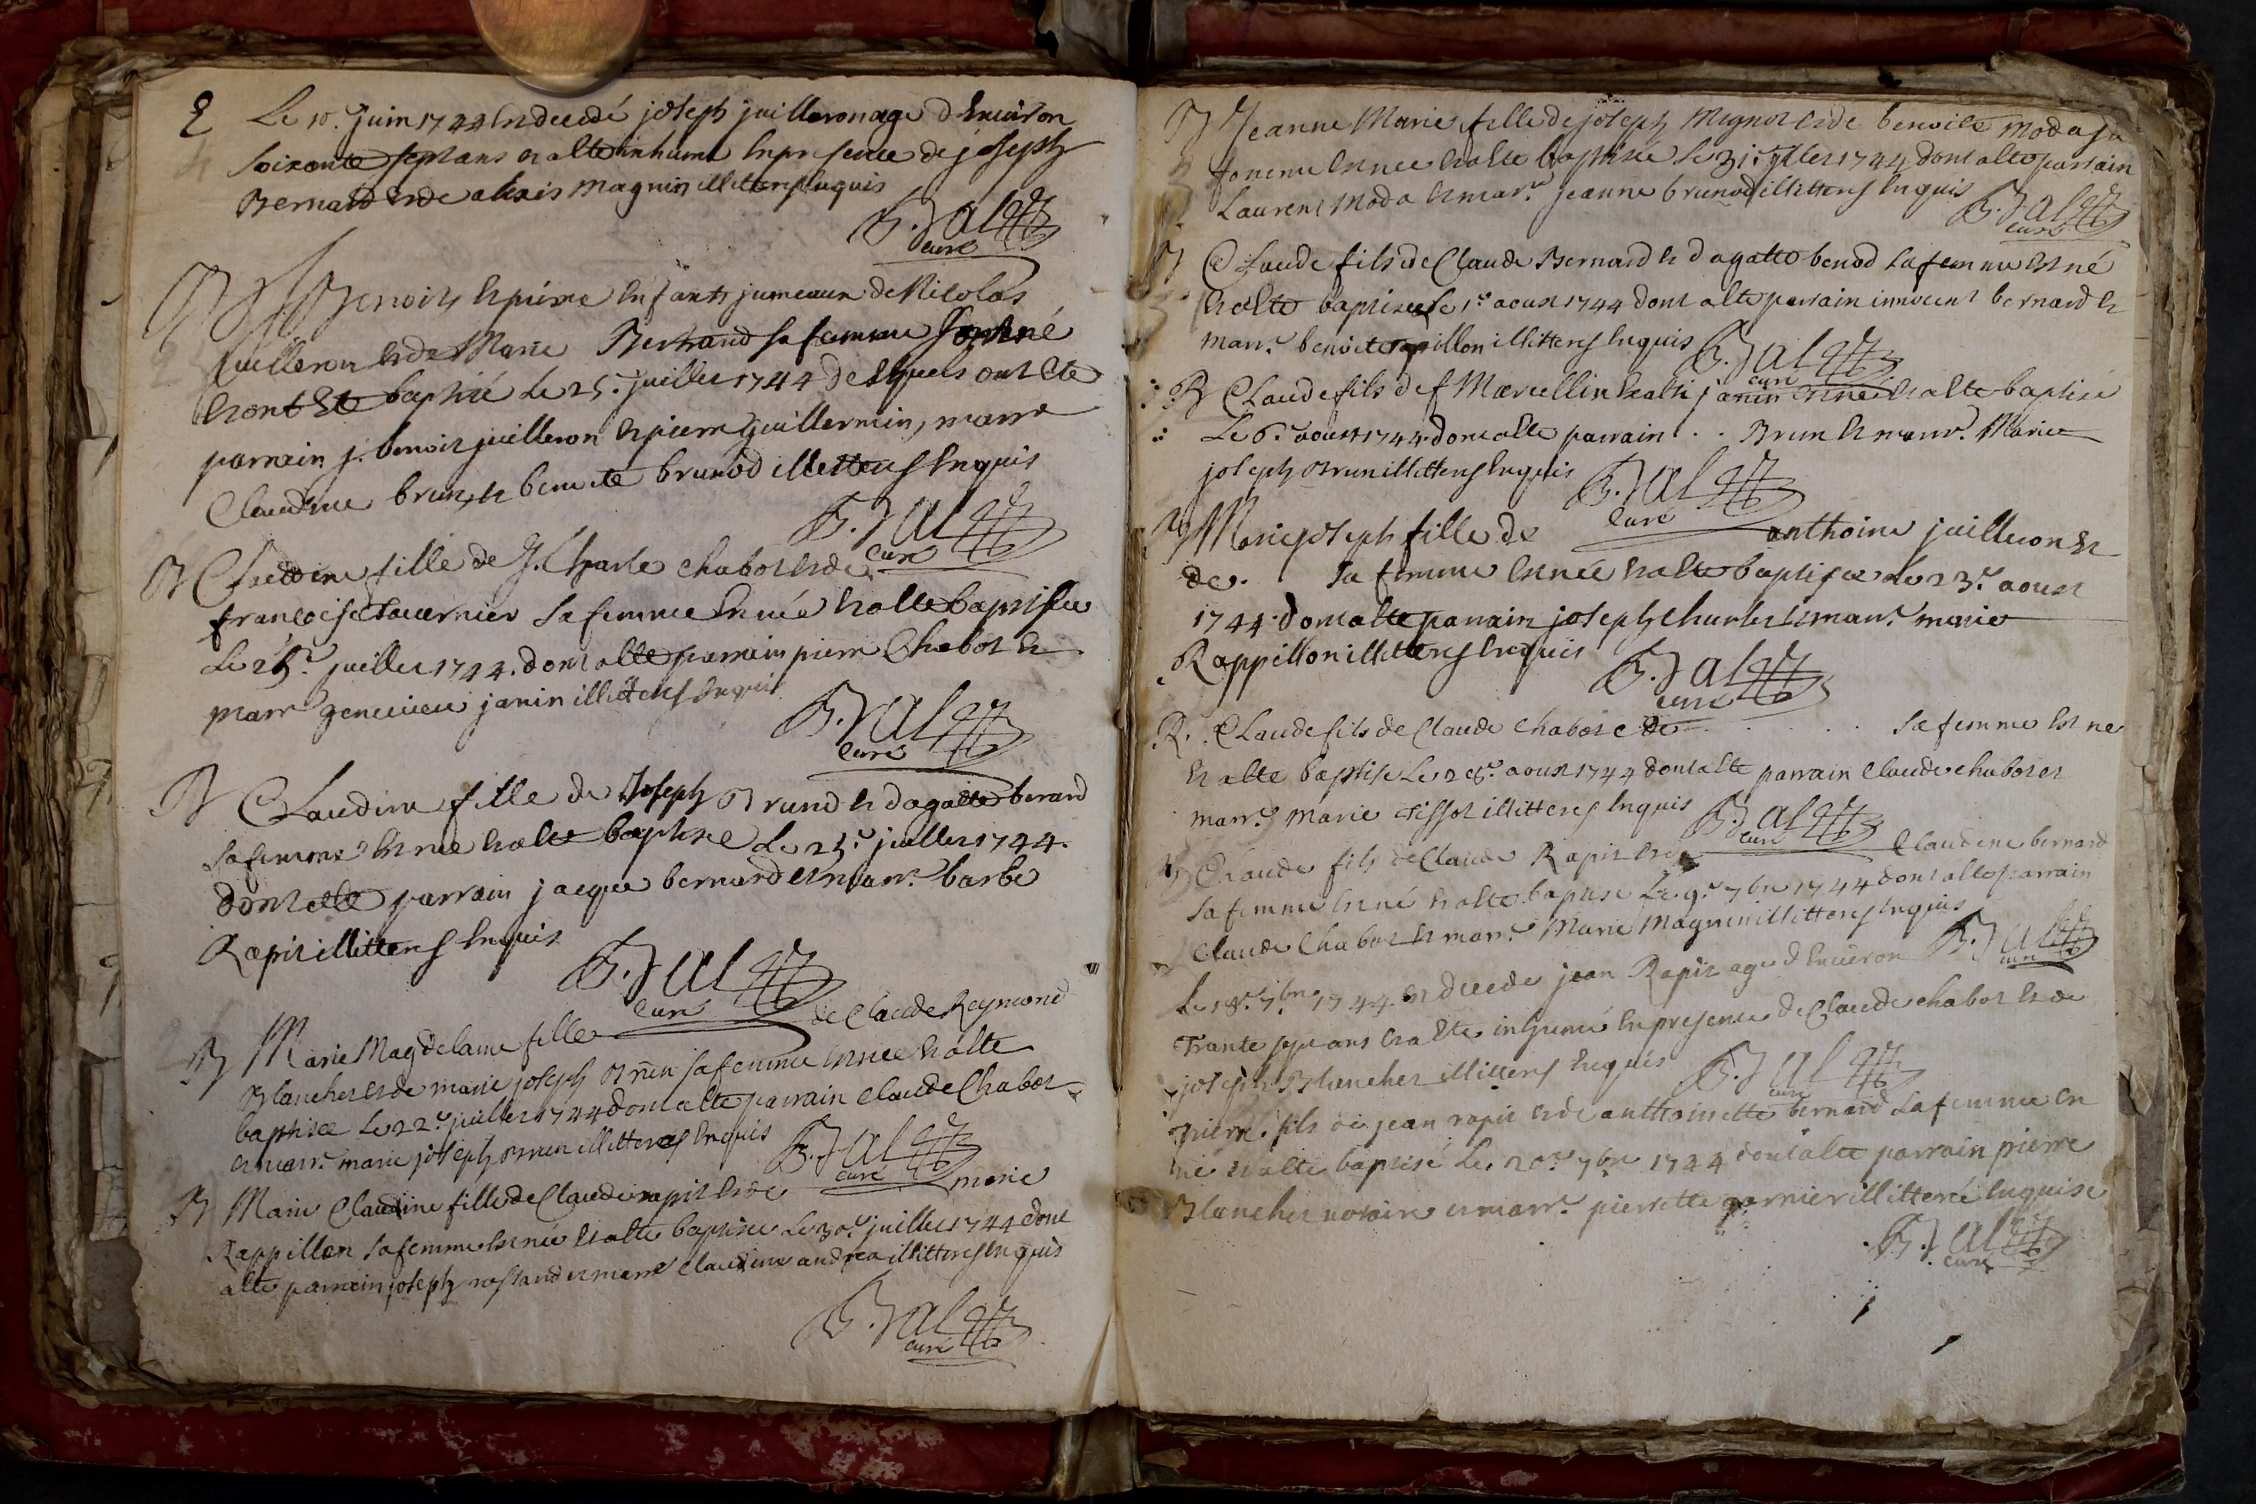 E Le 10.e juin 1744 est decedé joseph juilleron age d environ
soixante sept ans et a été inhumé en presence de joseph
Bernard et de alexis magnin illitterés enquis
B. Jal
curé
B Benoist et pierre enfants jumeaux de Nicolas
juilleron et de Marie Bertrand sa femme sont né
et ont été baptisé le 25.e juillet 1744 desquels ont été
parrain j. benoit juilleron et pierre guillermin, marre
Claudine brun, et benoite brunod illitterés enquis
B. Jal
curé
B Claudine fille de J. Charle chabot et de
françoise tavernier sa femme est née et a été baptisée
Le 25.e juillet 1744. dont a été parrain pierre Chabot et
marr.e genevieve janin illitterés enquis
B. Jal
curé
B Claudine fille de Joseph Brunod et d agatte benard
sa femme est née et a été baptisé le 25.e juillet 1744.
dont a été parrain jacque bernard et marr.e barbe
Rapit illitterés enquis
B. Jal
curé
B Marie Magdelaine fille de Claude Reymond
Blanchet et de marie joseph Brun sa femme est née et a été
baptisée Le 22.e juillet 1744 dont a été parrain Claude Chabot
et marr.e marie joseph Brun illitterés enquis
B. Jal
curé
B Marie Claudine fille de Claude rapit et de marie
Rappillon sa femme est née et a été baptisée Le 30.e juillet 1744 dont
a été parrain joseph et marre Claudine andrea illitterés enquis
B. Jal
curé
B Jeanne Marie fille de joseph Mignot et de benoite moda sa
femme est née et a été baptisée le 31.e juillet 1744 dont a été parrain
Laurent moda et mar.e jeanne brunod illitterés enquis
B. Jal
curé
B Claude fils de Claude Bernard et d agatte benod sa femme est né
et a été baptisé le 1.er aoust 1744 dont a été parrain innocent bernard et
marr.e benoite rapillon illitterés enquis
B. Jal
curé
B Claude fils de f Marcellin janin est né et a été baptisé
Le 6.e aoust 1744 dont a été parrain . . Brun et marr.e Marie
joseph Brun illitterés enquis
B. Jal
curé
B Marie joseph fille de anthoine juilleron et
de . sa femme est née et a été baptisée Le 23.e aoust
1744 dont a été parrain joseph charles et marr.e marie
Rappillon illitterés enquis
B. Jal
curé
B. Claude fils de Claude chabot et de . . . . sa femme est né
et a été baptisé Le 28.e aoust 1744 dont a été parrain Claude chabot et
marr.e marie tissot illitterés enquis
B. Jal
curé
B Claude fils de Claude Rapit et de Claudine bernard
sa femme est né et a été baptisé Le 9.e 7bre 1744 dont a été parrain
Claude Chabot et marr.e Marie Magnin illitterés enquis
B. Jal
curé
Le 18.e 7bre 1744 est decedé jean Rapit age d environ
Trante sept ans et a été inhumé en presence de Claude chabot et de
joseph Blanchet illitterés enquis
B. Jal
curé
Pierre fils de jean rapit et de anthoinette bernard sa femme est
né et a été baptisé le 20.e 7bre 1744 dont a été parrain pierre
Blanchet notaire et marr.e pierrette garnier illitteré enquise
B. Jal
curé